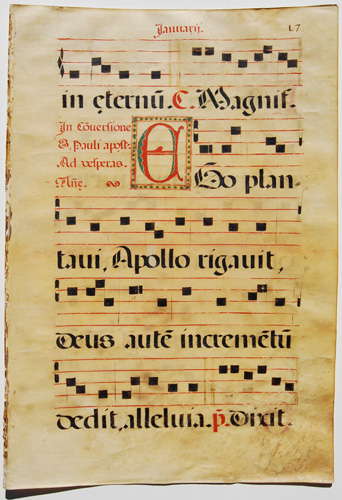 Januarij. 17
in ęternū. C. Magnif.
In Cōversione
S. Pauli apost:
Ad vesperas.
Añe.
EGo plan-
tavi, Apollo rigavit,
Deus autē incremētū
dedit, alleluia. p̄. Dixit.